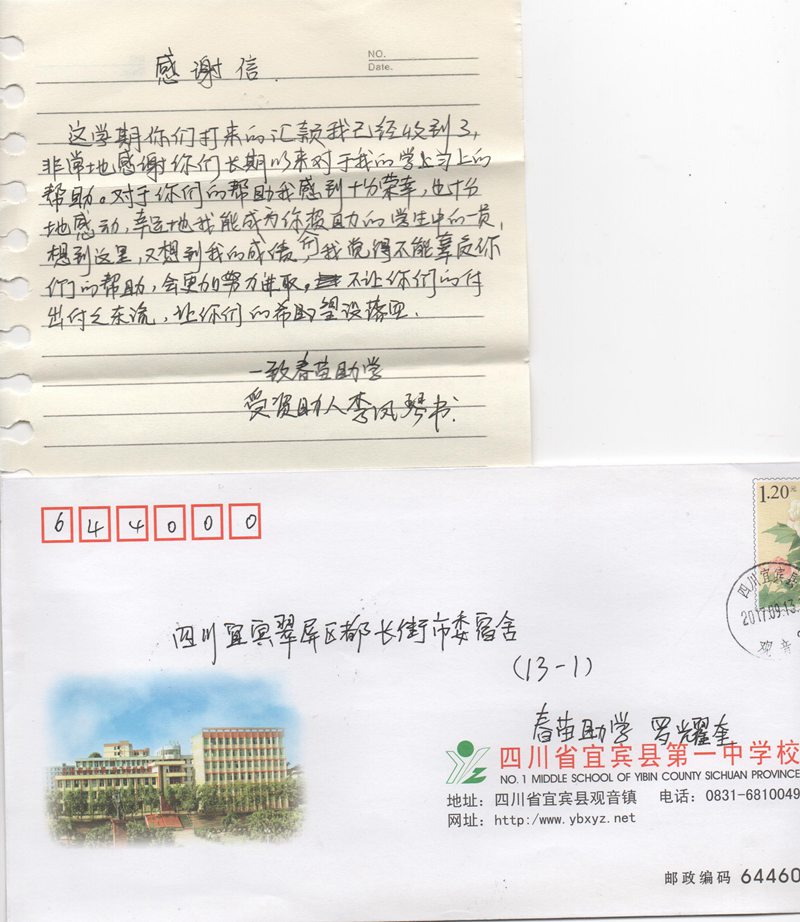 NO.
Date.
感谢信.
这学期你们打来的汇款我已经收到了,
非常地感谢你们长期以来对于我的学习上的
帮助。对于你们的帮助我感到十分荣幸,也十分
地感动,幸运地我能成为你们资助的学生中的一员,
想到这里,又想到我的成绩,我觉得不能辜负你
们的帮助,会更加努力进取。不让你们的付
出付之东流,让你们的希望没落空.
一致春苗助学
受资助人李凤琴书.
644000
1.20元
四川宜宾县
2017.09.13.
观音
四川宜宾翠屏区都长街市委宿舍
(13-1)
春苗助学 罗耀奎
四川省宜宾县第一中学校
NO.1 MIDDLE SCHOOL OF YIBIN COUNTY SICHUAN PROVINCE
地址:四川省宜宾县观音镇 电话:0831-6810049
网址:http:/www.ybxyz.net
邮政编码 64460